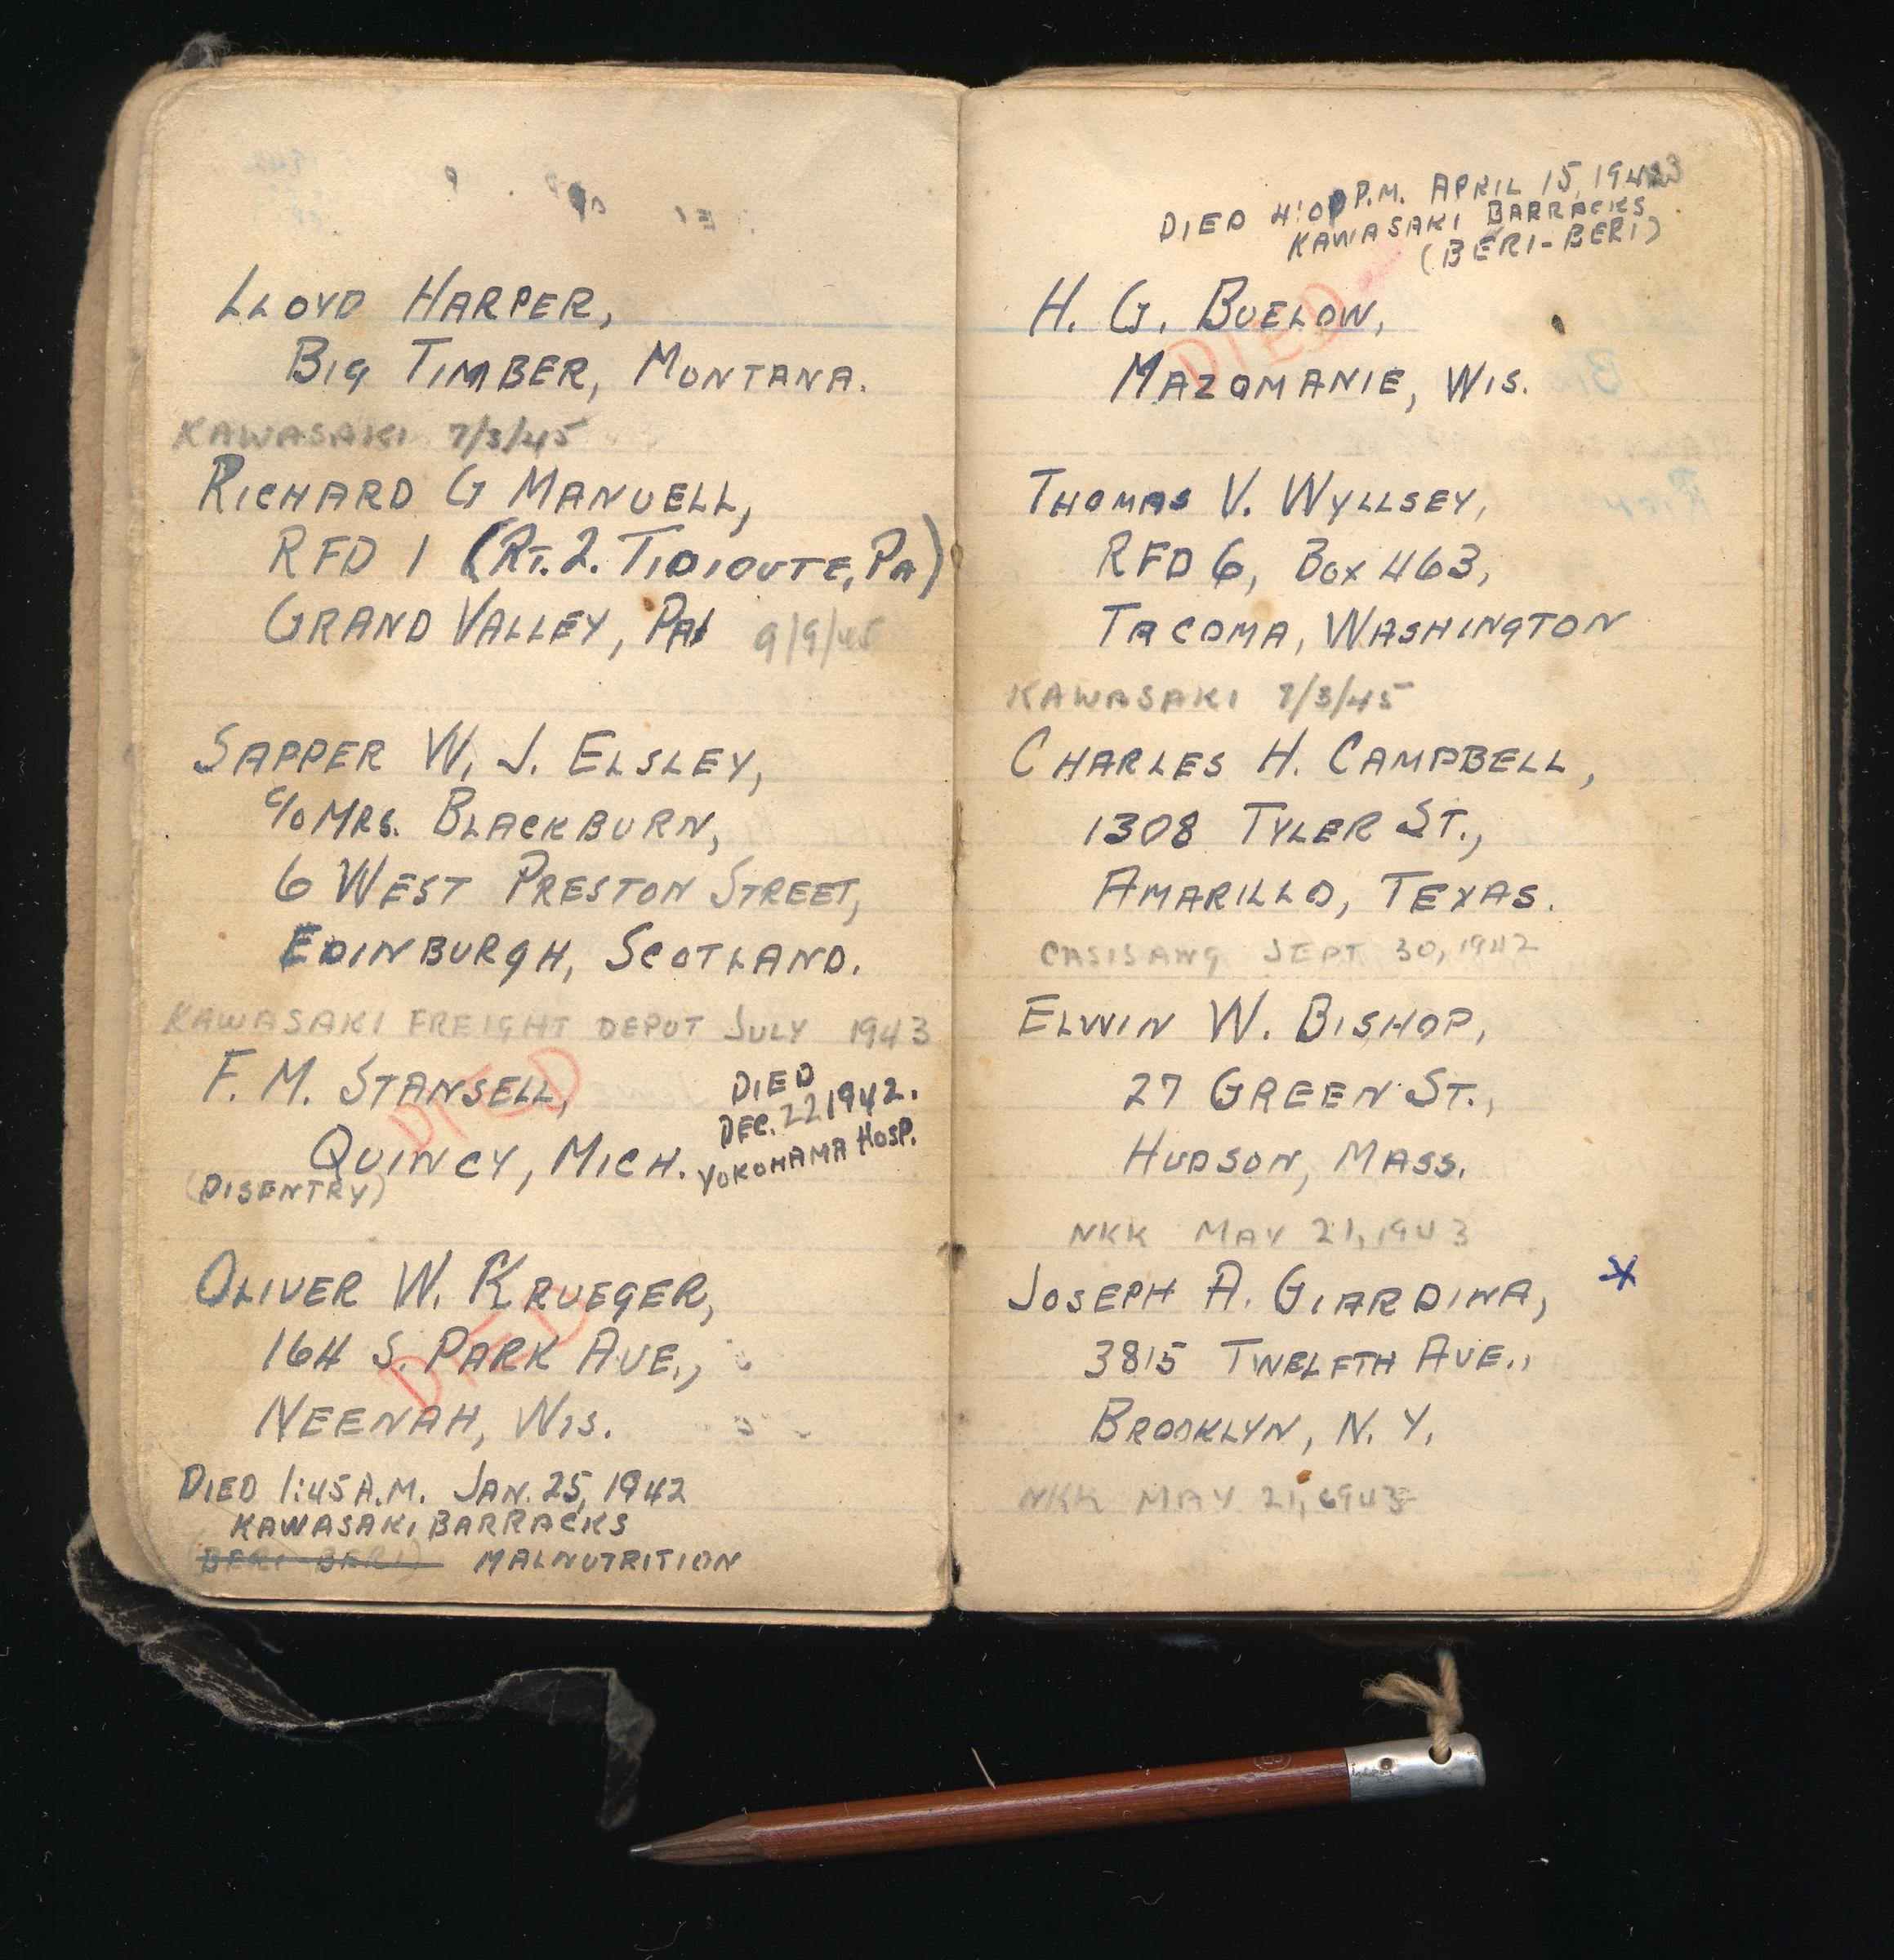 LLOYD HARPER,
BIG TIMBER, MONTANA.
KAWASAKI 7/3/45
RICHARD G MANUELL,
RFD 1 (RT. 2. TIDIOUTE, PA)
GRAND VALLEY, PA 9/9/45
SAPPER W. J. ELSLEY,
C/O MRS. BLACKBURN,
6 WEST PRESTON STREET,
EDINBURGH, SCOTLAND.
KAWASAKI FREIGHT DEPOT JULY 1943
F. M. STANSELL,
QUINCY, MICH.
(DISENTRY)
DIED
DIED
DEC. 22 1942.
YOKOHAMA HOSP.
OLIVER W. KRUEGER,
164 S. PARK AVE.,
NEENAH, WIS.
DIED
DIED 1:45 A.M. JAN. 25, 1942
KAWASAKI BARRACKS
(BERI-BERI) MALNUTRITION
DIED 4:00 P.M. APRIL 15, 1943
KAWASAKI BARRACKS
(BERI-BERI)
H. G. BUELOW,
MAZOMANIE, WIS.
DIED
THOMAS V. WYLLSEY,
RFD 6, BOX 463,
TACOMA, WASHINGTON
KAWASAKI 7/3/45
CHARLES H. CAMPBELL,
1308 TYLER ST.,
AMARILLO, TEXAS.
CASISANG SEPT 30, 1942
ELWIN W. BISHOP,
27 GREEN ST.,
HUDSON, MASS.
NKK MAY 21, 1943
JOSEPH A. GIARDINA, *
3815 TWELFTH AVE.,
BROOKLYN, N. Y.
NKK MAY 21, 1943